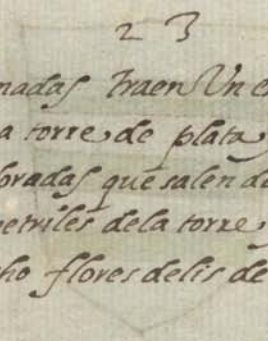 23
nadas traen Un e
a torre de plata
oradas que salen d
petriles dela torre
ho flores delis de